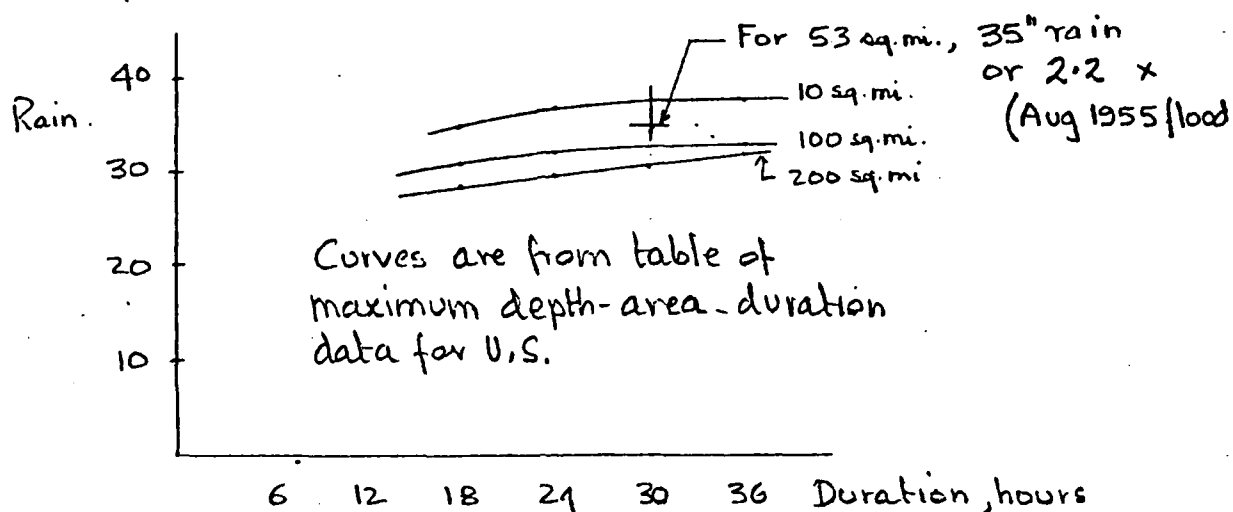 For 53 sq.mi., 35" rain
or 2.2 x
(Aug 1955 flood
40
Rain.
10 sq.mi.
100 sq.mi.
30
200 sq.mi
20
Curves are from table of
maximum depth-area-duration
data for U.S.
10
6 12 18 24 30 36 Duration, hours